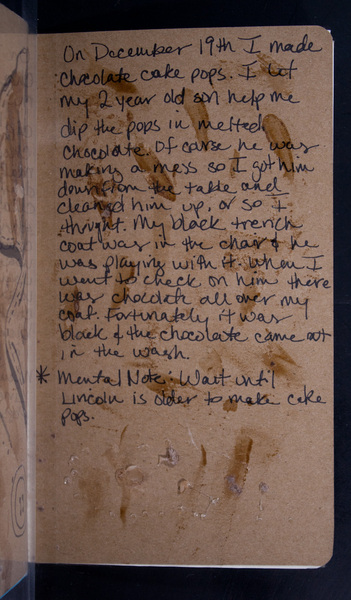 On December 19th I made
chocolate cake pops. I let
my 2 year old son help me
dip the pops in melted
chocolate. Of course he was
making a mess so I got him
down from the table and
cleaned him up, or so I
thought. My black trench
coat was in the chair & he
was playing with it. When I
went to check on him there
was chocolate all over my
coat. Fortunately it was
black & the chocolate came out
in the wash.
* Mental Note: Wait until
Lincoln is older to make cake
pops.